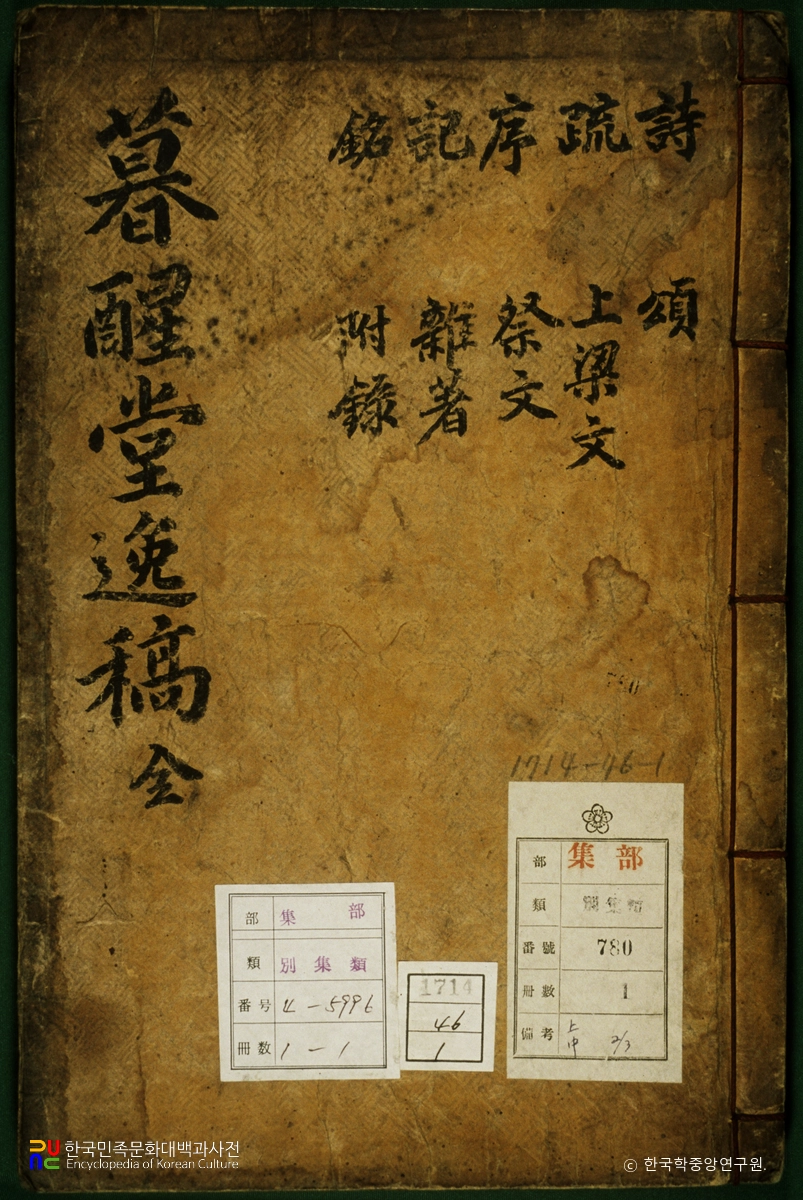 詩 疏 序 記 銘
頌 上梁文 祭文 雜著 附錄
暮醒堂逸稿 全
1714-46-1
部 集部
類 別集類
番號 780
冊數 1
備考 上中 2/3
部 集部
類 別集類
番号 4-5996
冊数 1-1
1714
46
1
한국민족문화대백과사전
Encyclopedia of Korean Culture
© 한국학중앙연구원.